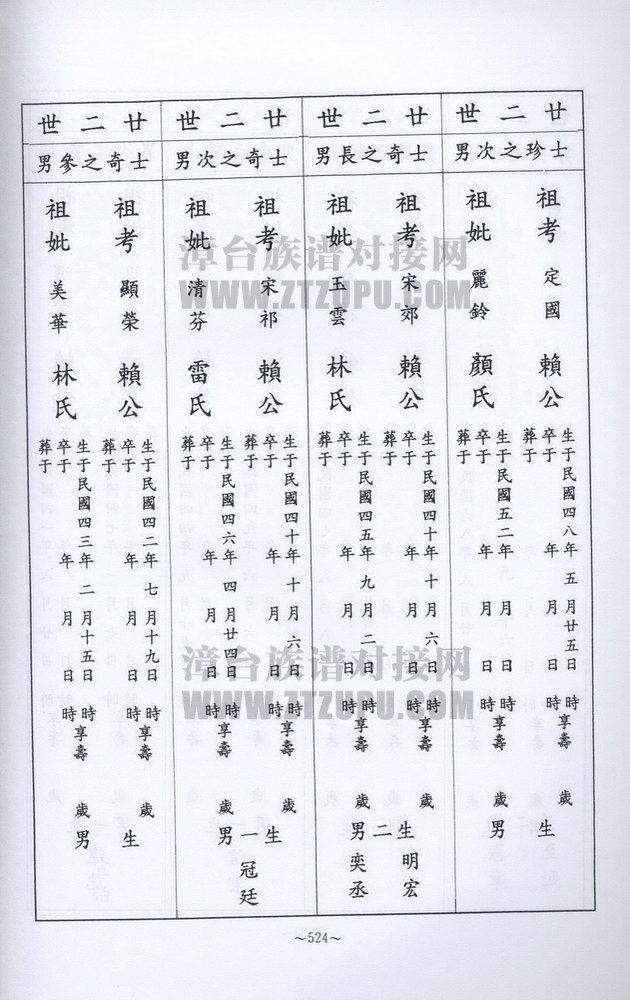 廿二世
士珍之次男
祖考 定國 賴公
生于民國四八年五月廿五日 時
卒于 年 月 日 時享壽 歲
葬于
祖妣 麗鈴 顏氏
生于民國五二年 月 日 時
卒于 年 月 日 時享壽 歲
葬于
生 男
廿二世
士奇之長男
祖考 宋郊 賴公
生于民國四十年十月六日 時
卒于 年 月 日 時享壽 歲
葬于
祖妣 玉雲 林氏
生于民國四五年九月二日 時
卒于 年 月 日 時享壽 歲
葬于
生二男
明宏
奕丞
廿二世
士奇之次男
祖考 宋祁 賴公
生于民國四十年十月六日 時
卒于 年 月 日 時享壽 歲
葬于
祖妣 清芬 雷氏
生于民國四六年四月廿四日 時
卒于 年 月 日 時享壽 歲
葬于
生一男
冠廷
廿二世
士奇之參男
祖考 顯榮 賴公
生于民國四二年七月十九日 時
卒于 年 月 日 時享壽 歲
葬于
祖妣 美華 林氏
生于民國四三年二月十五日 時
卒于 年 月 日 時享壽 歲
葬于
生 男
～524～
漳台族谱对接网
WWW.ZTZUPU.COM
漳台族谱对接网
WWW.ZTZUPU.COM